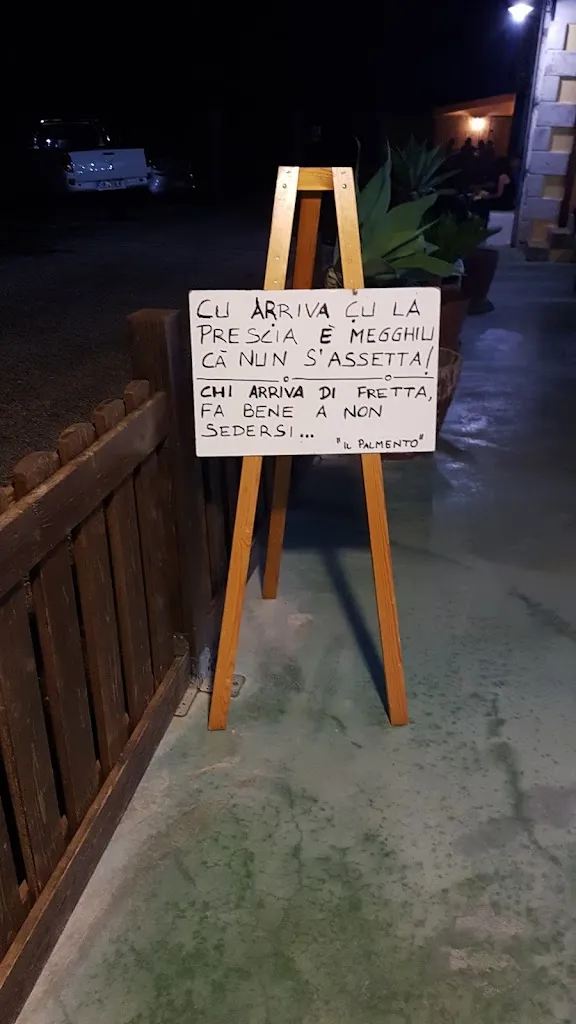 CU ARRIVA CU LA
PRESCIA È MEGGHIU
CÀ NUN S'ASSETTA!
CHI ARRIVA DI FRETTA,
FA BENE A NON
SEDERSI...
"IL PALMENTO"